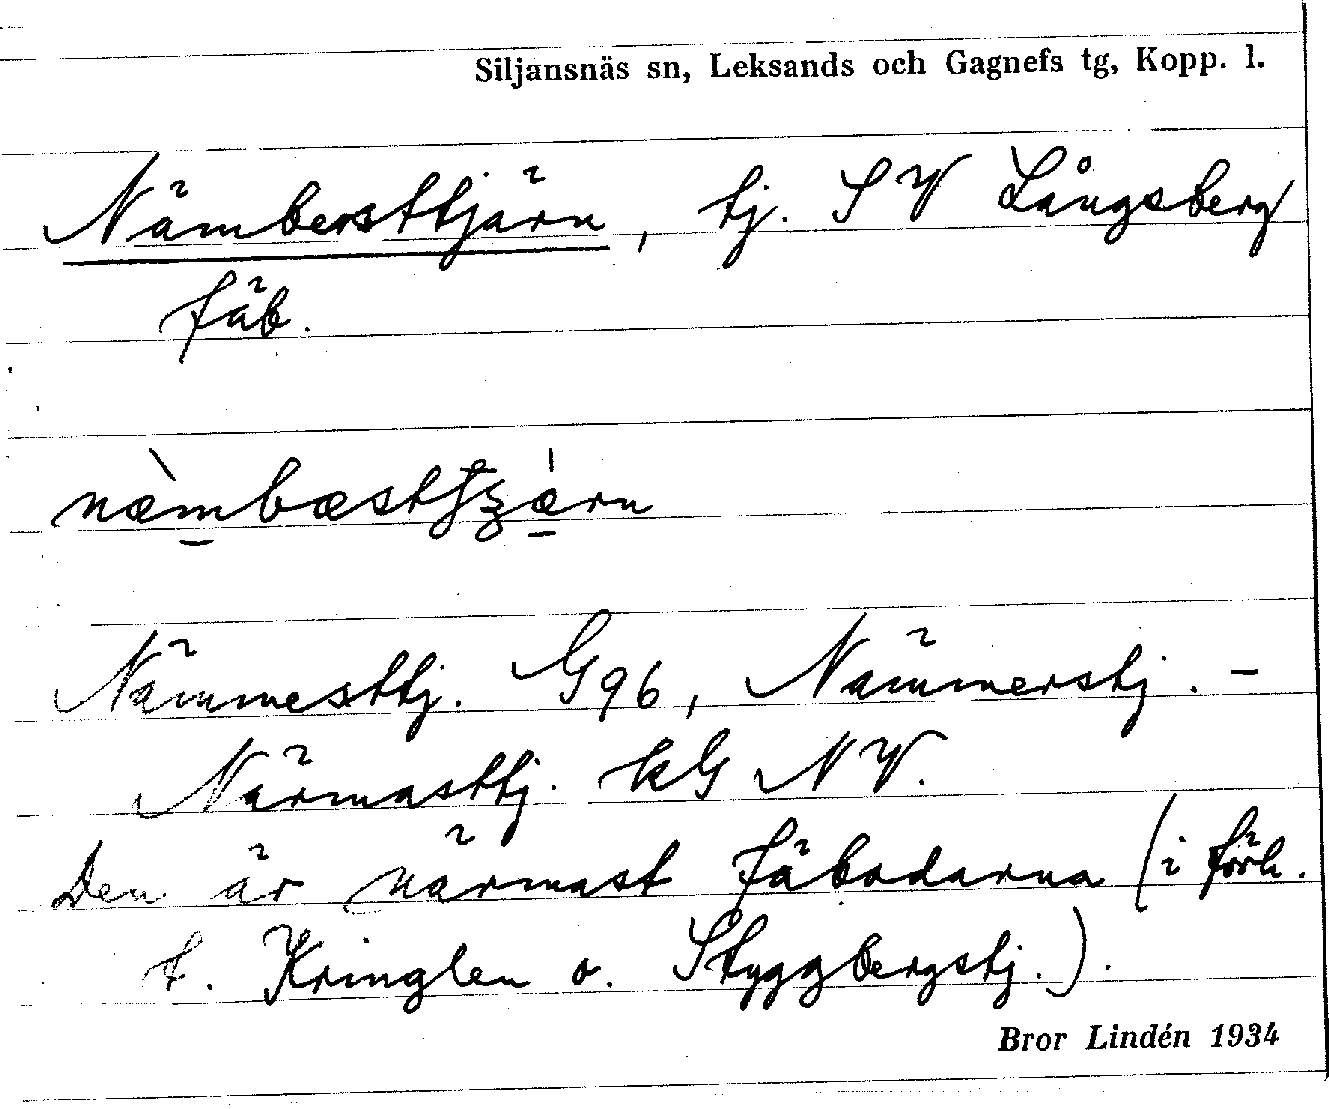 Siljansnäs sn, Leksands och Gagnefs tg, Kopp. l.
Nämbersttjärn, tj. SV Långsberg
fäb.
Nämmesttj. G96, Nämmerstj. –
Närmasttj. kG NV.
Den är närmast fäbodarna (i förh.
t. Kringlen o. Styggbergstj.).
Bror Lindén 1934